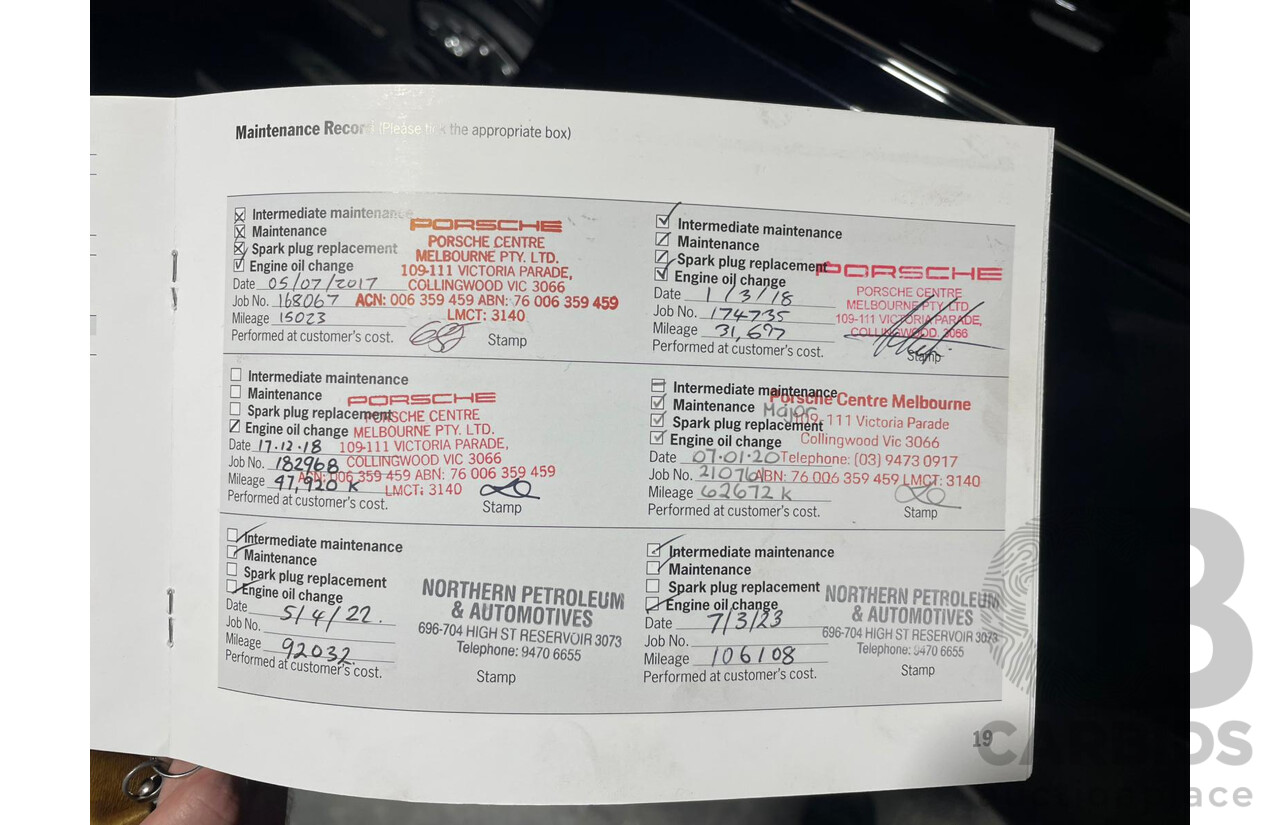 Maintenance Record (Please tick the appropriate box)
Intermediate maintenance
Maintenance
Spark plug replacement
Engine oil change
Date 05/07/2017
Job No. 168067
Mileage 15023
Performed at customer's cost.
PORSCHE
PORSCHE CENTRE
MELBOURNE PTY. LTD.
109-111 VICTORIA PARADE,
COLLINGWOOD VIC 3066
ACN: 006 359 459 ABN: 76 006 359 459
LMCT: 3140
Stamp
Intermediate maintenance
Maintenance
Spark plug replacement
Engine oil change
Date 1/3/18
Job No. 174735
Mileage 31,697
Performed at customer's cost.
PORSCHE
PORSCHE CENTRE
MELBOURNE PTY LTD
109-111 VICTORIA PARADE,
COLLINGWOOD, 3066
Stamp
Intermediate maintenance
Maintenance
Spark plug replacement
Engine oil change
Date 17.12.18
Job No. 182968
Mileage 47,920 K
Performed at customer's cost.
PORSCHE
PORSCHE CENTRE
MELBOURNE PTY. LTD.
109-111 VICTORIA PARADE,
COLLINGWOOD VIC 3066
ACN: 006 359 459 ABN: 76 006 359 459
LMCT: 3140
Stamp
Intermediate maintenance
Maintenance Major
Spark plug replacement
Engine oil change
Date 07.01.20
Job No. 210761
Mileage 62672 K
Performed at customer's cost.
Porsche Centre Melbourne
109-111 Victoria Parade
Collingwood Vic 3066
Telephone: (03) 9473 0917
ABN: 76 006 359 459 LMCT: 3140
Stamp
Intermediate maintenance
Maintenance
Spark plug replacement
Engine oil change
Date 5/4/22.
Job No.
Mileage 92032
Performed at customer's cost.
NORTHERN PETROLEUM
& AUTOMOTIVES
696-704 HIGH ST RESERVOIR 3073
Telephone: 9470 6655
Stamp
Intermediate maintenance
Maintenance
Spark plug replacement
Engine oil change
Date 7/3/23
Job No.
Mileage 106108
Performed at customer's cost.
NORTHERN PETROLEUM
& AUTOMOTIVES
696-704 HIGH ST RESERVOIR 3073
Telephone: 9470 6655
Stamp
19
CARBIDS